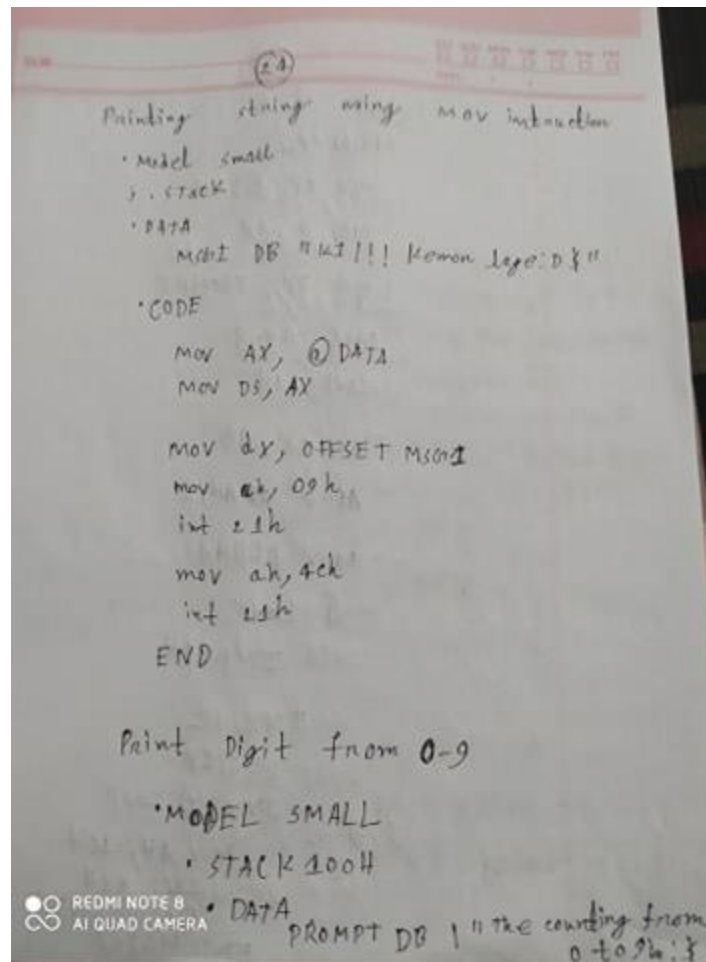 24
Printing string using mov intruction
.Model small
; .STACK
.DATA
MSG1 DB "KI!!! Kemon lage:D $"
.CODE
MOV AX, @DATA
MOV DS, AX
MOV dx, OFFSET MSG1
mov ah, 09h
int 21h
mov ah, 4ch
int 21h
END
Print Digit from 0-9
.MODEL SMALL
.STACK 100H
.DATA
PROMPT DB \ "The counting from
0 to 9h:$
REDMI NOTE 8
AI QUAD CAMERA